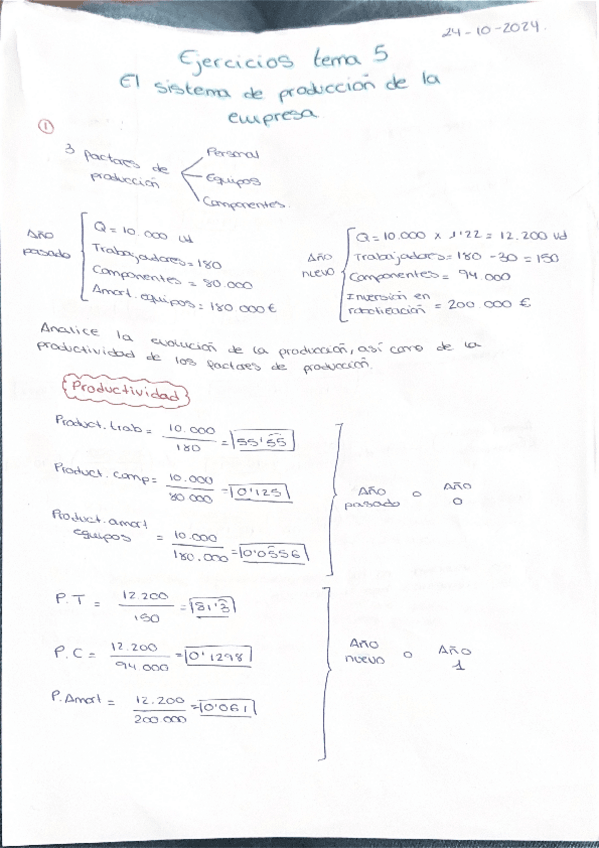 24-10-2024.
Ejercicios tema 5
El sistema de producción de la
empresa.
①
3 factores de
producción
Personal
Equipos
Componentes.
Año
pasado
Q = 10.000 ud
Trabajadores = 180
Componentes = 80.000
Amort. equipos = 180 000 €
Año
nuevo
Q = 10.000 x 1'22 = 12.200 ud
Trabajadores = 180 - 30 = 150
Componentes = 94 000
Inversión en
robotización = 200 000 €
Analice la evolución de la producción, así como de la
productividad de los factores de producción.
Productividad
Product. trab = 10.000 / 180 = 55'55
Product. comp = 10.000 / 80 000 = 0'125
Product. amort
equipos = 10.000 / 180.000 = 0'0556
Año
pasado o Año
0
P.T = 12.200 / 150 = 81'3
P.C = 12.200 / 94 000 = 0'1298
P. Amort = 12.200 / 200.000 = 0'061
Año
nuevo o Año
1